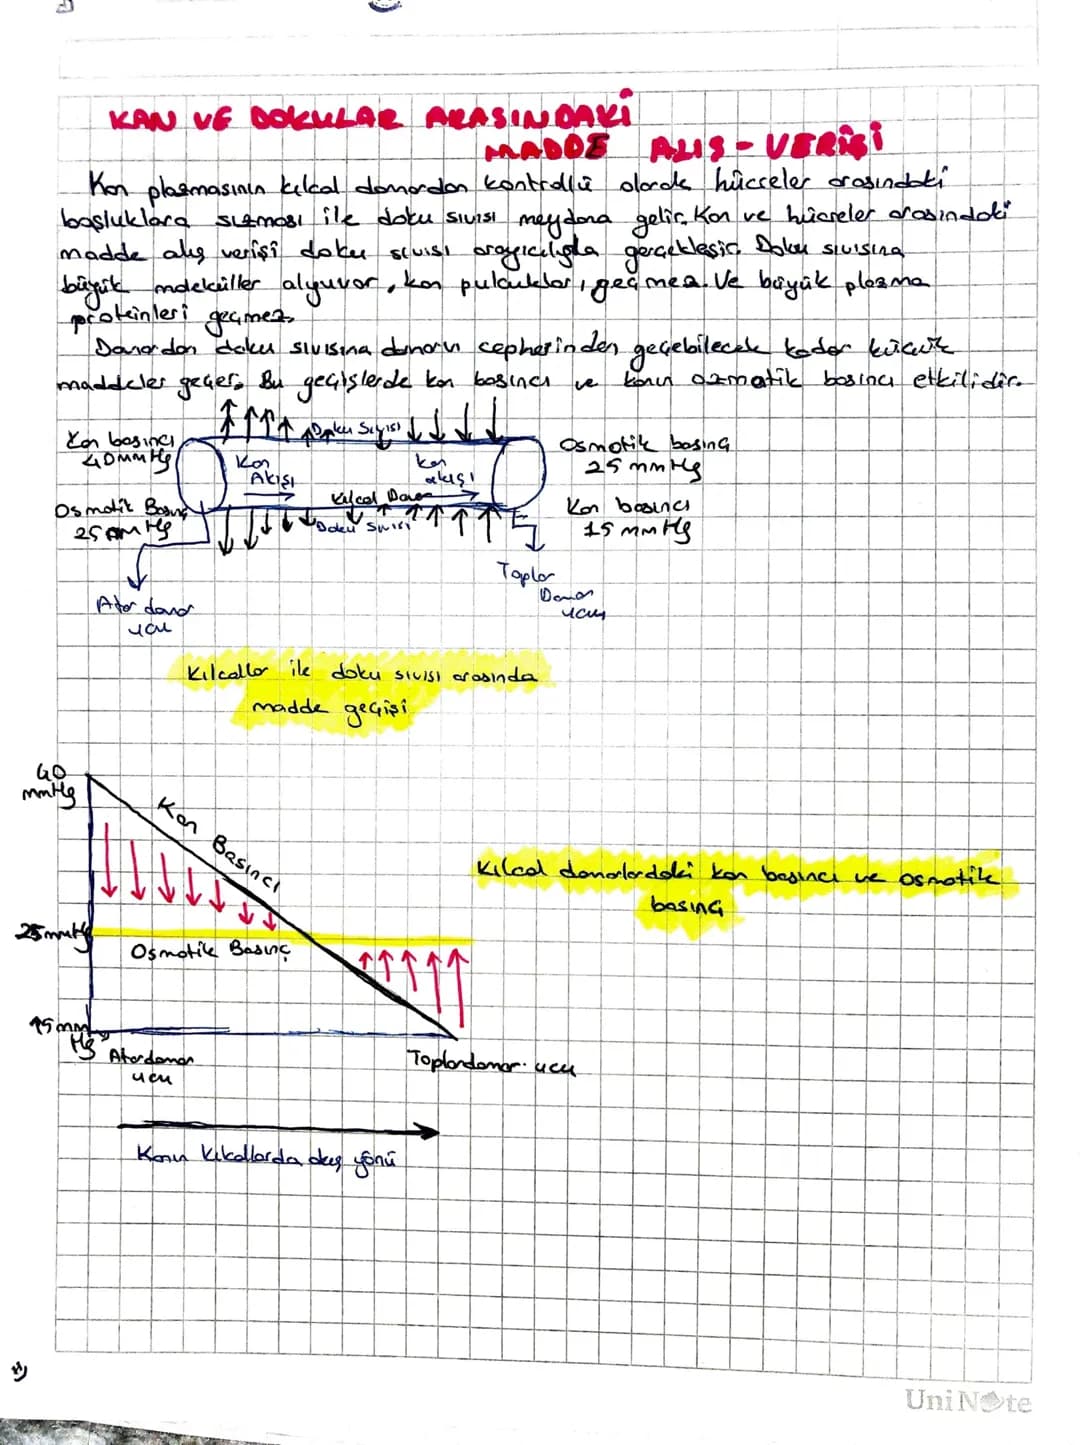 KAN VE DOKULAR ARASINDAKİ
MADDE ALIŞ-VERİŞİ
Kan plazmasının kılcal damardan kontrollü olarak hücreler arasındaki
boşluklara sızması ile doku sıvısı meydana gelir. Kan ve hücreler arasındaki
madde alış verişi doku sıvısı aracılığıyla gerçekleşir. Doku sıvısına
büyük moleküller alyuvar, kan pulcukları, geçmez. Ve büyük plazma
proteinleri geçmez.
Damardan doku sıvısına damarın cepherinden geçebilecek kadar küçük
maddeler geçer. Bu geçişlerde kan basıncı ve kanın ozmatik basıncı etkilidir.
Kan basıncı
40mmHg
Osmotik Basınç
25 mmHg
Doku Sıvısı
Kan
Akışı
kan
akışı
Kılcal Damar
Doku Sıvısı
Osmotik basınç
25 mmHg
Kan basıncı
15 mmHg
Atar damar
ucu
Toplar
Damar
ucu
Kılcallar ile doku sıvısı arasında
madde geçişi
40
mmHg
Kan Basıncı
Kılcal damarlardaki kan basıncı ve osmotik
basınç
25mmHg
Osmotik Basınç
15mm
Hg
Atardamar
ucu
Toplardamar ucu
Kanın Kılcallarda akış yönü
UniNote